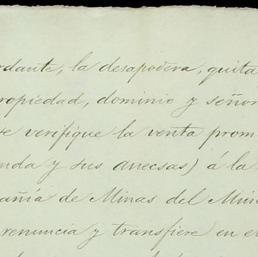 rdante, la desapodera, quita
ropiedad, dominio y señor
se verifique la venta prom
nda y sus anecsas) á la
añia de Minas del Min
renuncia y transfiere en e